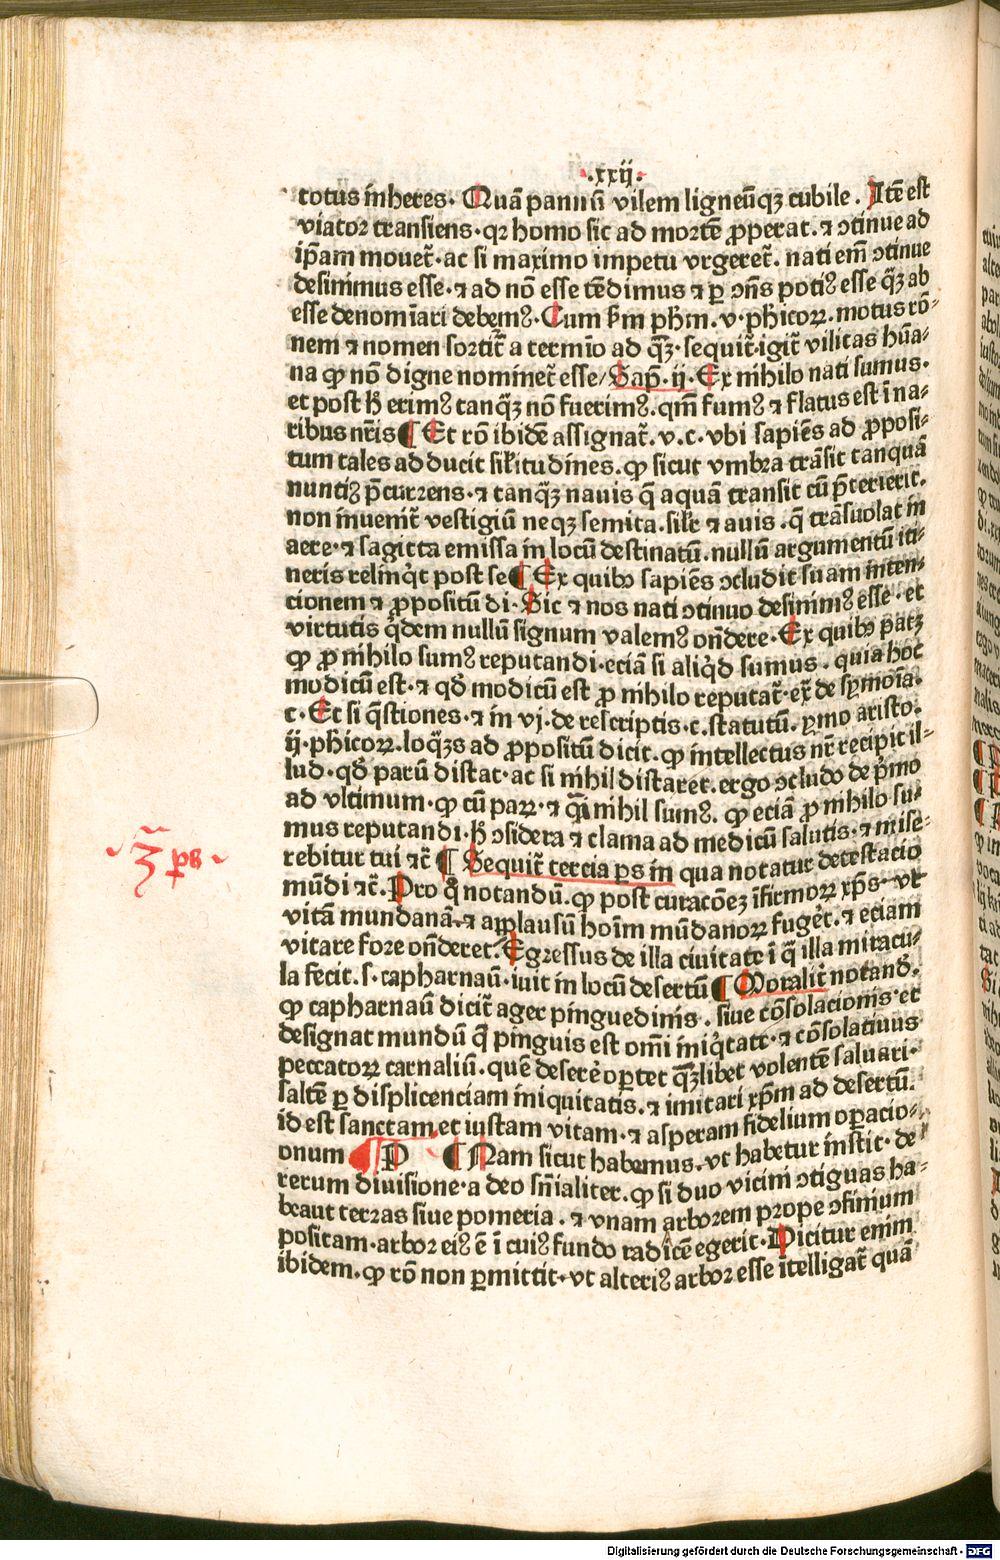 .xxij.
totus inheres. Quā pannū vilem ligneūqꝫ cubile. Itē est
viator transiens. qꝛ homo sic ad mortē ꝓperat. ⁊ ꝯtinue ad
ip̄am mouet̄. ac si maximo impetu vrgeret̄. nati em̄ ꝯtinue
desinimus esse. ⁊ ad nō esse tēdimus ⁊ ꝑ ꝯn̄s poti⁹ esse q̄ꝫ ab
esse denomīari debem⁹. Cum scd̄m ph̄m. v. ph̄icoꝝ. motus rō-
nem ⁊ nomen sortit̄ a termīo ad q̄ꝫ. sequit̄. igit̄ vilitas hūa-
na ꝙ nō digne nominet̄ esse/ Sap̄. ij. Ex nihilo nati sumus.
et post h̄ erim⁹ tanq̄ꝫ nō fuerim⁹. qm̄ fum⁹ ⁊ flatus est ī na-
ribus nr̄is ¶ Et rō ibidē assignat̄. v. c. vbi sapiēs ad ꝓposi-
tum tales adducit sil̄itudines. ꝙ sicut vmbra trāsit tanquā
nunti⁹ p̄currens. ⁊ tanq̄ꝫ nauis q̄ aquā transit cū p̄terierit.
non inuenit̄ vestigiū neqꝫ semita. sil̄r ⁊ auis. q̄ trāsuolat in
aere. ⁊ sagitta emissa in locū destinatū. nullū argumentū iti-
neris relinq̄t post se ¶ Ex quibꝰ sapiēs ꝯcludit suam inten-
tionem ⁊ ꝓpositū di. Sic ⁊ nos nati ꝯtinuo desinim⁹ esse. et
virtutis q̄dem nullū signum valem⁹ on̄dere. Ex quibꝰ patꝫ
ꝙ ꝓ nihilo sum⁹ reputandi. eciā si aliq̄d sumus. quia hoc
modicū est. ⁊ qđ modicū est ꝓ nihilo reputat̄. ex̄ de symoīa.
c. Et si q̄stiones. ⁊ in vj. de rescriptis. c. statutū. p̄mo aristo.
ij. ph̄icoꝝ. loq̄ꝫs ad ꝓpositū dicit. ꝙ intellectus nr̄ recipit il-
lud. qđ parū distat. ac si nihil distaret. ergo ꝯcludo de p̄mo
ad vltimum. ꝙ cū paꝝ. ⁊ q̄si nihil sum⁹. ꝙ eciā ꝓ nihilo su-
mus reputandi. h̄ ꝯsidera ⁊ clama ad medicū salutis. ⁊ mise-
rebitur tui ⁊c̄ ¶ Sequit̄ tercia ps in qua notatur detestacio
mūdi ⁊c̄. Pro q̄ notandū. ꝙ post curacōeꝫ īfirmoꝝ xp̄s. vt
vitā mundanā. ⁊ applausū hoīm mūdanoꝝ fuger̄t. ⁊ eciam
vitare fore on̄deret. Egressus de illa ciuitate ī q̄ illa miracu-
la fecit. s. capharnaū. iuit in locū desertū ¶ Moralit̄ notand̄.
ꝙ capharnaū dicit̄ ager pinguedinis. siue cōsolacionis. et
designat mundū q̄ pinguis est om̄i iniq̄tate. ⁊ cōsolatiuus
peccatoꝝ carnaliū. quē deserēre oꝑtet q̄ꝫlibet volentē saluari.
saltē ꝑ displicenciam iniquitatis. ⁊ imitari xp̄m ad desertū.
id est sanctam et iustam vitam. ⁊ asperam fidelium oꝑacio-
onum ¶ P ¶ Nam sicut habemus. vt habetur instit. de
rerum diuisione. a deo sn̄ialiter. ꝙ si duo vicini ꝯtiguas ha-
beaut terras siue pomeria. ⁊ vnam arborem prope ꝯfinium
positam. arbor ei⁹ ē ī cui⁹ fundo radīcē egerit. Dicitur enim
ibidem. ꝙ rō non ꝑmittit. vt alteri⁹ arbor esse ītelligat̄ quā
3ᵃ ps
Digitalisierung gefördert durch die Deutsche Forschungsgemeinschaft - DFG